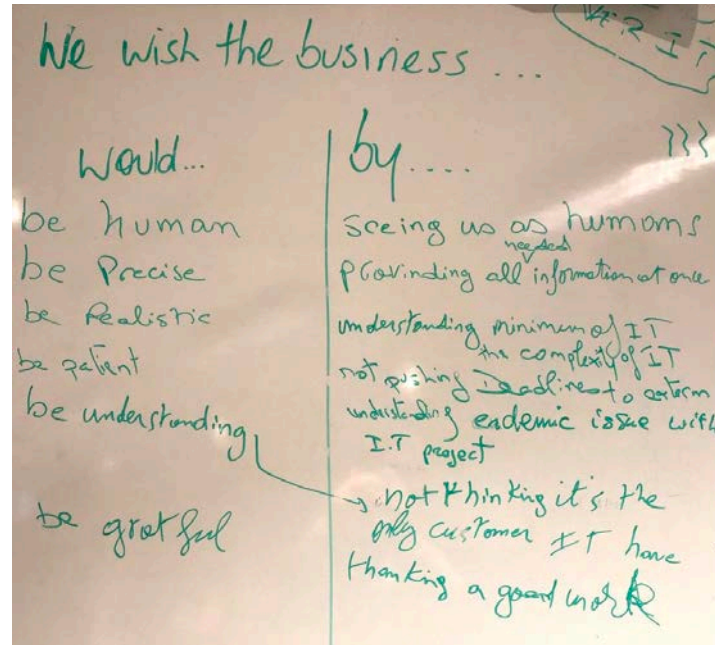 VERIT
We wish the business ...
would...
be human
be Precise
be Realistic
be patient
be understanding
be gratful
by....
sceing us as humans
needed
provinding all information at once
understanding minimum of IT
the complexity of IT
not pushing Deadlines to
understanding endemic issue with
I.T project
not thinking it's the
only customer IT have
thanking a good work